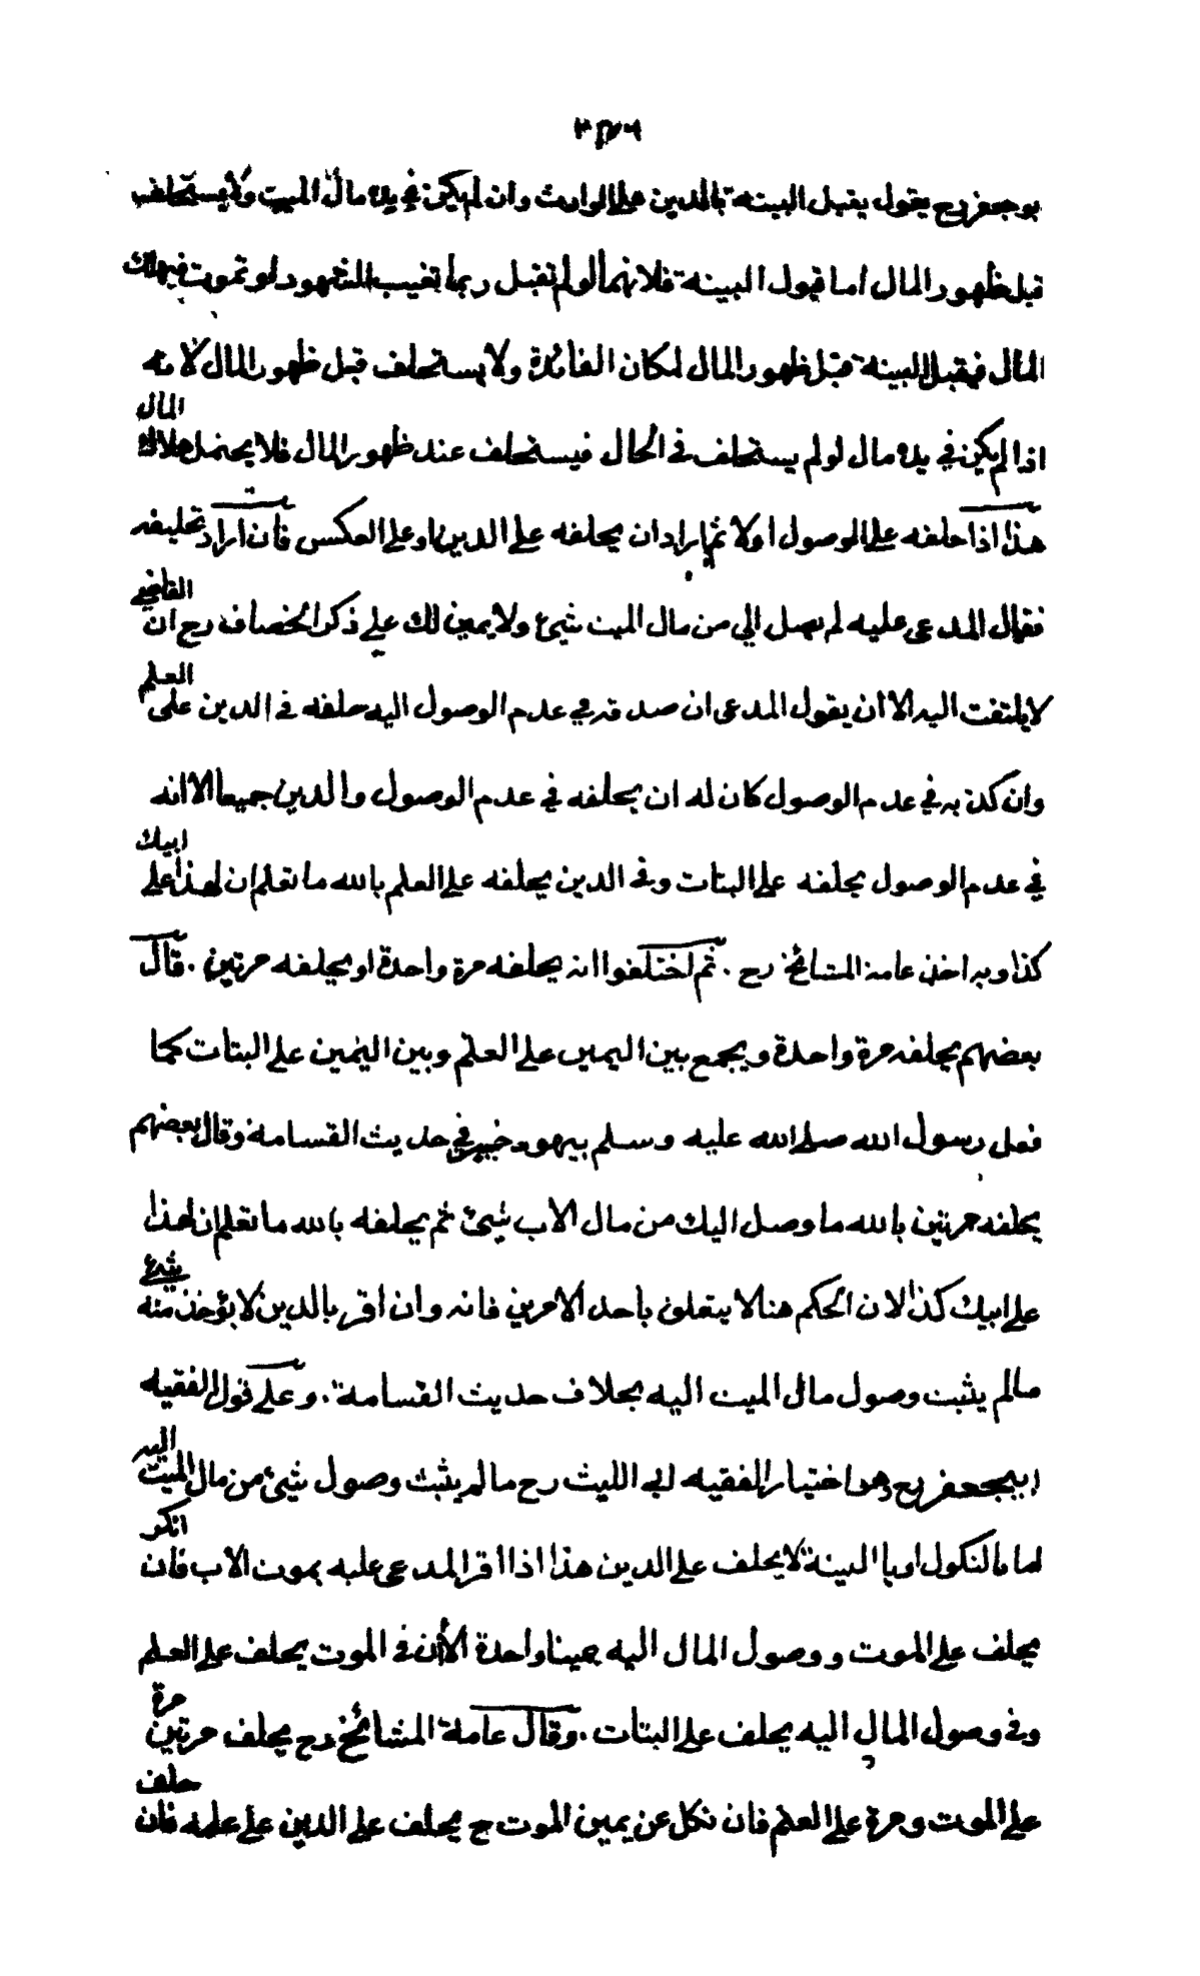 بوجعفر رح يقول يقبل البينة بالدين على الوارث وان لم يكن في يده مال الميت ولا يستحلف
قبل ظهور المال اما قبول البينة فلانها لو لم تقبل ربما تغيب الشهود او تموت فيهلك
المال فيقبل البينة قبل ظهور المال لمكان الفائدة ولا يستحلف قبل ظهور المال لانه
اذا لم يكن في يده مال لو لم يستحلف في الحال فيستحلف عند ظهور المال فلا يحتمل هلاك المال
هذا اذا حلفه على الوصول اولا ثم اراد ان يحلفه على الدين او على العكس فان اراد تحليفه
فقال المدعى عليه لم يصل الي من مال الميت شيئ ولا يمين لك علي ذكر الخصاف رح ان القاضي
لا يلتفت اليه الا ان يقول المدعى ان صدقه في عدم الوصول اليه حلفه في الدين على العلم
وان كذبه في عدم الوصول كان له ان يحلفه في عدم الوصول والدين جميعا الا انه
في عدم الوصول يحلفه على البتات وفي الدين يحلفه على العلم بالله ما تعلم ان لهذا على ابيك
كذا وبه اخذ عامة المشائخ رح . ثم اختلفوا انه يحلفه مرة واحدة او يحلفه مرتين . قال
بعضهم يحلفه مرة واحدة ويجمع بين اليمين على العلم وبين اليمين على البتات كما
فعل رسول الله صلى الله عليه وسلم بيهود خيبر في حديث القسامة وقال بعضهم
يحلفه مرتين بالله ما وصل اليك من مال الاب شيئ ثم يحلفه بالله ما تعلم ان لهذا
على ابيك كذا لان الحكم هنا لا يتعلق باحد الامرين فانه وان اقر بالدين لا يؤخذ منه شيئ
مالم يثبت وصول مال الميت اليه بخلاف حديث القسامة . وعلى قول الفقيه
ابيجعفر رح وهو اختيار الفقيه ابي الليث رح مالم يثبت وصول شيئ من مال الميت اليه
اما بالنكول او بالبينة لا يحلف على الدين هذا اذا اقر المدعى عليه بموت الاب فان انكر
يحلف على الموت ووصول المال اليه يمينا واحدة الا ان في الموت يحلف على العلم
وفي وصول المال اليه يحلف على البتات . وقال عامة المشائخ رح يحلف مرتين مرة
على الموت ومرة على العلم فان نكل عن يمين الموت ح يحلف على الدين على علمه فان حلف